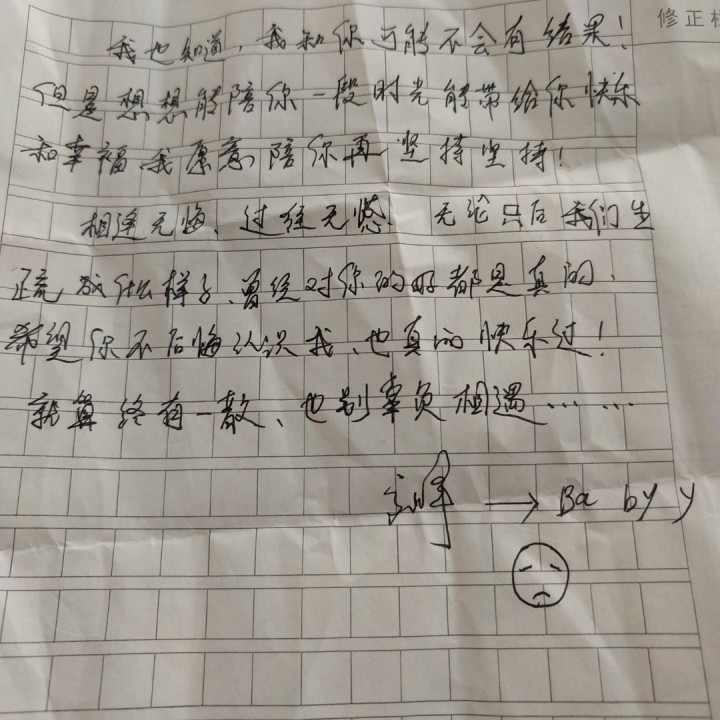 修正
我也知道,我和你可能不会有结果!
但是想想能陪你一段时光能带给你快乐
和幸福、我愿意陪你再坚持坚持!
相逢无悔、过往无憾、无论只后我们生
疏成什么样子、曾经对你的好都是真的、
希望你不后悔认识我、也真的快乐过!
就算终有一散、也别辜负相遇……
→ Ba by y